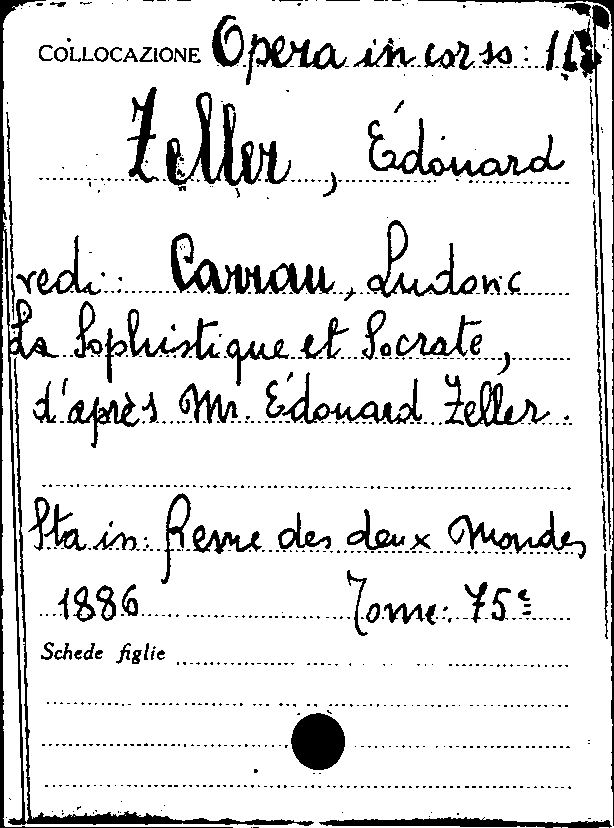 COLLOCAZIONE Opera in corso:
Zeller, Édouard
vedi: Carrau, Ludovic
La Sophistique et Socrate,
d'après Mr. Édouard Zeller.
Sta in: Revue des deux Mondes
1886 Tome: 75e
Schede figlie